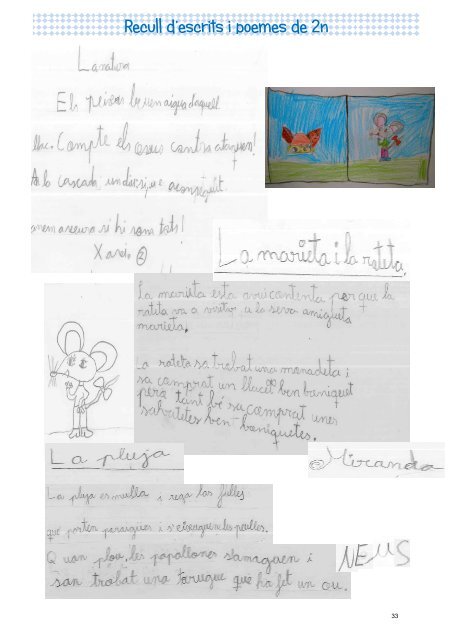 Recull d'escrits i poemes de 2n
La natura
Els peixos beuen aigua d'aquell
llac. Compte els ossos contra atanquen!
A la cascada un dia si que aconseguit.
anem a veure si hi som tots!
Xavi 2
La marieta i la rateta.
La marieta esta avui contenta perque la
rateta va a visitar a la seva amigueta
marieta.
La rateta sa trobat una monadeta i
sa comprat un llacet ben boniquet
però tant bé sa comprat unes
sabatetes ben boniquetes.
@Miranda
La pluja
La pluja es mulla i rega las fulles
que porten paraigües i s'eixuguen les perlles.
Quan plou, les papallones s'amaguen i
san trobat una tortugue que ha fet un ou.
NEUS
33